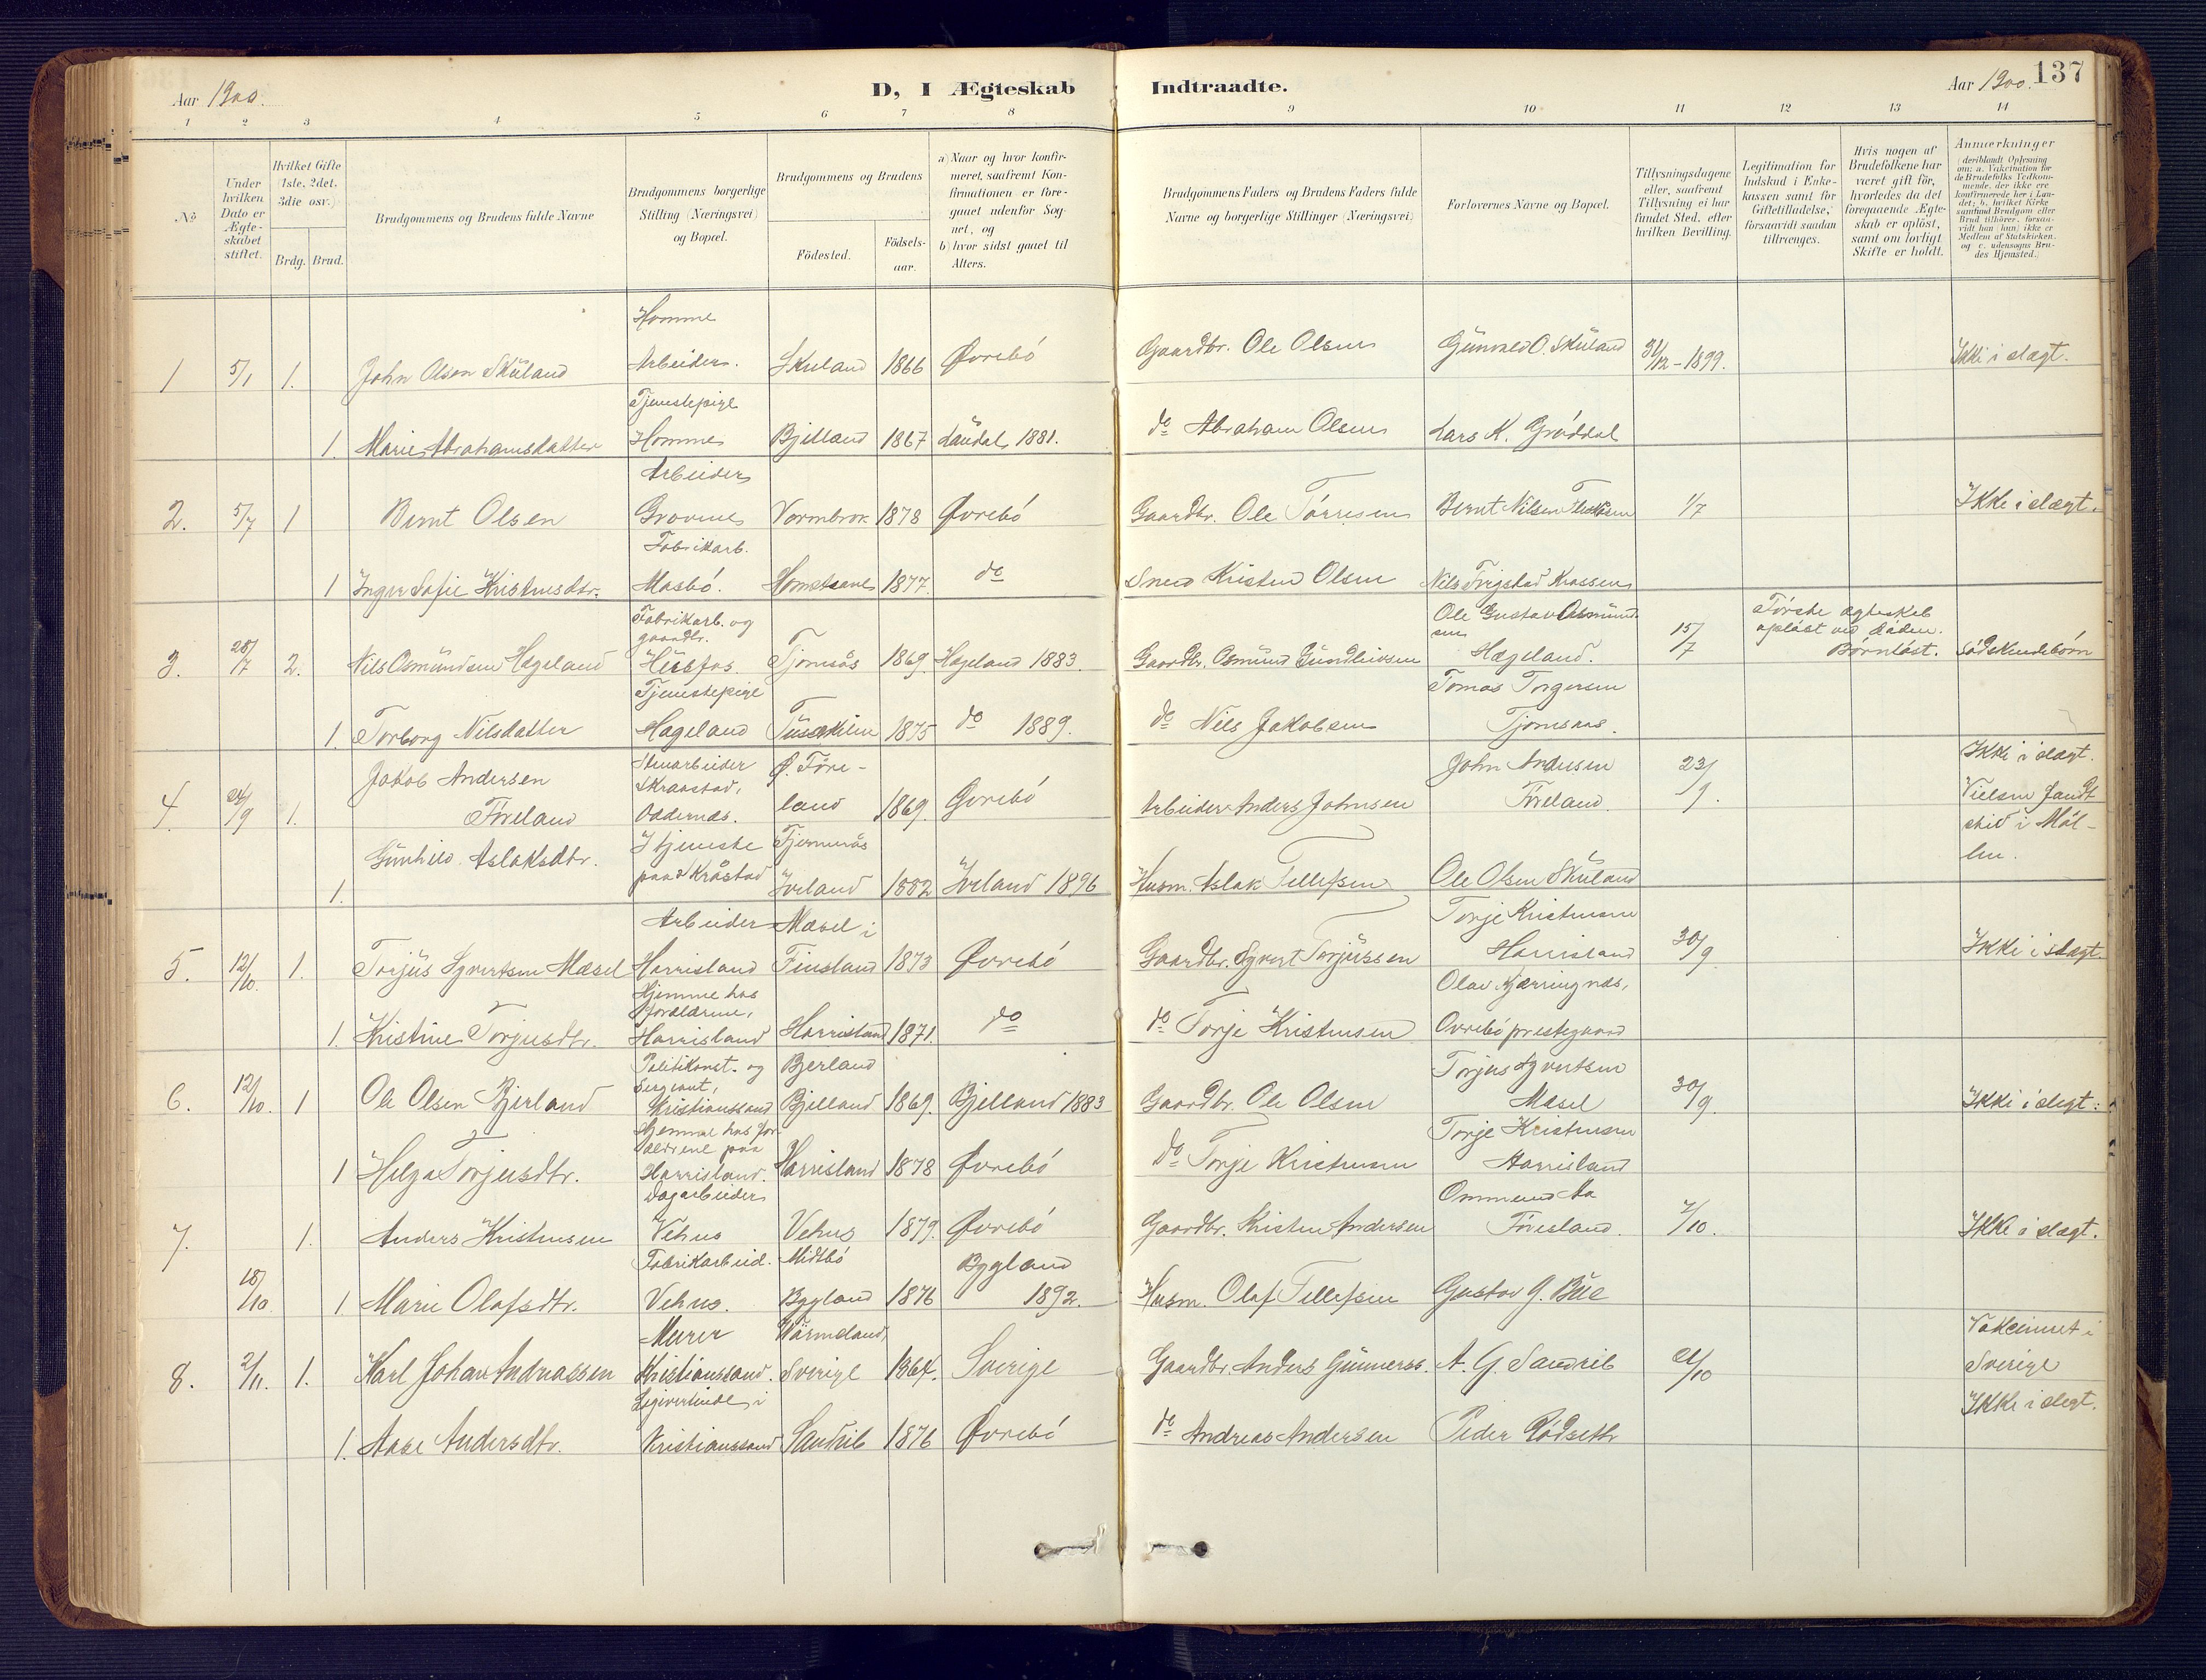 Aar 1900.
D, I Ægteskab Indtraadte.
Aar 1900. 137
1 2 3 4 5 6 7 8 9 10 11 12 13 14
No
Under hvilken Dato er Ægteskabet stiftet.
Hvilket Gifte (1ste, 2det, 3die osv.)
Brdg. Brud.
Brudgommens og Brudens fulde Navne
Brudgommens borgerlige Stilling (Næringsvei) og Bopæl.
Brudgommens og Brudens
Födested.
Födsels-aar.
a) Naar og hvor konfirmeret, saafremt Konfirmationen er foregaaet udenfor Sognet, og
b) hvor sidst gaaet til Alters.
Brudgommens Faders og Brudens Faders fulde Navne og borgerlige Stillinger (Næringsvei)
Forlovernes Navne og Bopæl.
Tillysningsdagene eller, saafremt Tillysning ei har fundet Sted, efter hvilken Bevilling.
Legitimation for Indskud i Enkekassen samt for Giftetilladelse, forsaavidt saadan tiltrænges.
Hvis nogen af Brudefolkene har været gift för, hvorledes da det foregaaende Ægteskab er oplöst, samt om lovligt Skifte er holdt.
Anmærkninger
(deriblandt Oplysning om: a. Vakcination for de Brudefolks Vedkommende, der ikke ere konfirmerede her i Landet; b. hvilket Kirkesamfund Brudgom eller Brud tilhörer, forsaavidt han (hun) ikke er Medlem af Statskirken, og c. udensogns Brudes Hjemsted.)
Homme
1 5/1 1. John Olsen Skuland Arbeider. Skuland 1866 Øvrebó Gaardbr. Ole Olsen Gunvald O. Skuland 31/12-1899. Ikke i slægt.
Tjenestepige
1. Marie Abrahamsdatter Homme Bjelland 1867 Laudal 1881. do Abraham Olsen Lars K. Gróddal
Arbeider
2. 5/7 1 Bernt Olsen Grovene Vormbrok 1878 Øvrebó Gaardbr. Ole Tórresen Bernt Nilsen 1/7 Ikke i slægt.
Fabrikarb.
1 Inger Sofie Kristensdtr. Mosbó. 1877. do Kristen Olsen Nils
Fabrikarb. og gaardbr. Ole Gustav Osmundsen Fórste ægteskab
opløst ved dóden.
3. 28/7 2. Nils Osmundsen Hægeland Tjomsås 1869. Hægeland 1883. Gaardbr. Osmund Gundleivsen Hægeland. 15/7 Barnløst. Sódskendebórn
Tjenestepige Tomas Torgersen
1. Torborg Nilsdatter Hageland 1875 do 1889. do Nils Jakobsen Tjomsaas.
Jakob Andersen Stenarbeider Ø. Fóre- John Andersen Ikke i slægt.
4. 24/9 1. Fóreland Skraastad, Oddernes. land 1869. Øvrebó Arbeider Anders Johnsen Fóreland 23/9. Vielsen fandt
sted i Mól-
len.
Gunhild Aslaksdtr. I tjeneste
1. paa Kråstad Iveland 1882 Iveland 1896 Husm. Aslak Tellefsen Ole Olsen Skuland
Arbeider Mæsel i Torje Kristensen
5. 12/10. 1. Torjus Syvertsen Mæsel Harrisland Finsland 1873 Øvrebó Gaardbr. Syvert Torjussen Harrisland 30/9 Ikke i slægt.
Hjemme hos forældrene, Olav Kjærringnes,
1. Kristine Torjusdtr. Harrisland Harrisland 1871. do do Torje Kristensen Øvrebó prestegaard
Politikonst. og Bjerland Torjus Syvertsen
Sergeant,
6. 12/10. 1 Ole Olsen Bjerland Kristianssand Bjelland 1869. Bjelland 1883 Gaardbr. Ole Olsen Mæsel 30/9. Ikke i slegt.
Hjemme hos for- Torje Kristensen
ældrene paa
1 Helga Torjusdtr. Harrisland. Harrisland 1878 Øvrebó do Torje Kristensen Harrisland
Dagarbeider Ommund Aa
7. 1. Anders Kristensen Vehus Vehus 1879. Øvrebó Gaardbr. Kristen Andersen Fóresland. 7/10. Ikke i slægt.
Fabrikarbeid. Midtbó Bygland
18/10. 1 Marie Olafsdtr. Vehus. Bygland 1876 1892. Husm. Olaf Tellefsen Gustav G. Bue
Murer Värmeland, Vakcineret i
8. 2/11. 1. Karl Johan Andreassen Kristianssand. Sverige 1864. Sverige Gaardbr. Anders Gunnerss. A. G. Sandrib 21/10 Sverige
Ikke i slegt.
1. Aase Andersdtr. Kristianssand Sandrib 1876 Øvrebó do Andreas Andersen Peder Ródseth